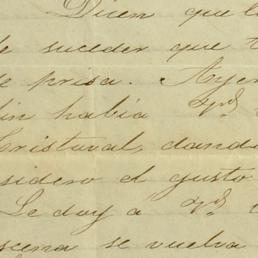 Dicen que l
de suceder que t
de prisa. Ayer
lin había
Cristoval, dand
sidero el gusto
Le doy á
escena se vuelva